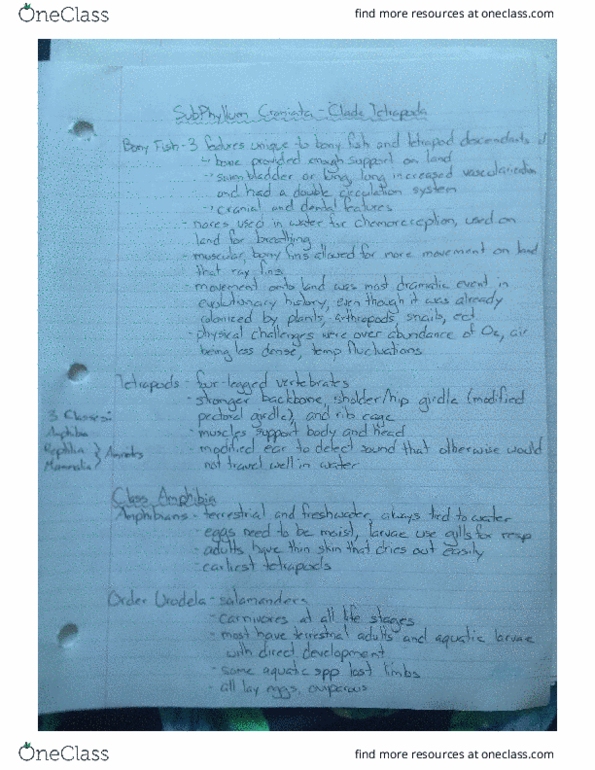 OneClass
find more resources at oneclass.com
SubPhyllum Craniata - Clade Tetrapoda
Bony Fish - 3 features unique to bony fish and tetrapod descendants
↳ bone provided enough support on land
↳ swim bladder or lung, lung increased vascularization
and had a double circulation system
↳ cranial and dental features
- nares used in water for chemoreception, used on
land for breathing
- muscular, bony fins allowed for more movement on land
that ray fins
- movement onto land was most dramatic event in
evolutionary history, even though it was already
colonized by plants, arthropods, snails, ect.
- physical challenges were over abundance of O₂, air
being less dense, temp fluctuations
Tetrapods - four-legged vertebrates
- stronger backbone, sholder/hip girdle (modified
pectoral girdle), and rib cage
3 Classes:
- muscles support body and head
Amphibia
- modified ear to detect sound that otherwise would
Reptilia } Amniotes
not travel well in water
Mammalia
Class Amphibia
Amphibians - terrestrial and freshwater, always tied to water
- eggs need to be moist, larvae use gills for resp
- adults have thin skin that dries out easily
- earliest tetrapods
Order Urodela - salamanders
- carnivores at all life stages
- most have terrestrial adults and aquatic larvae
with direct development
- some aquatic spp lost limbs
- all lay eggs, oviparous
OneClass
find more resources at oneclass.com